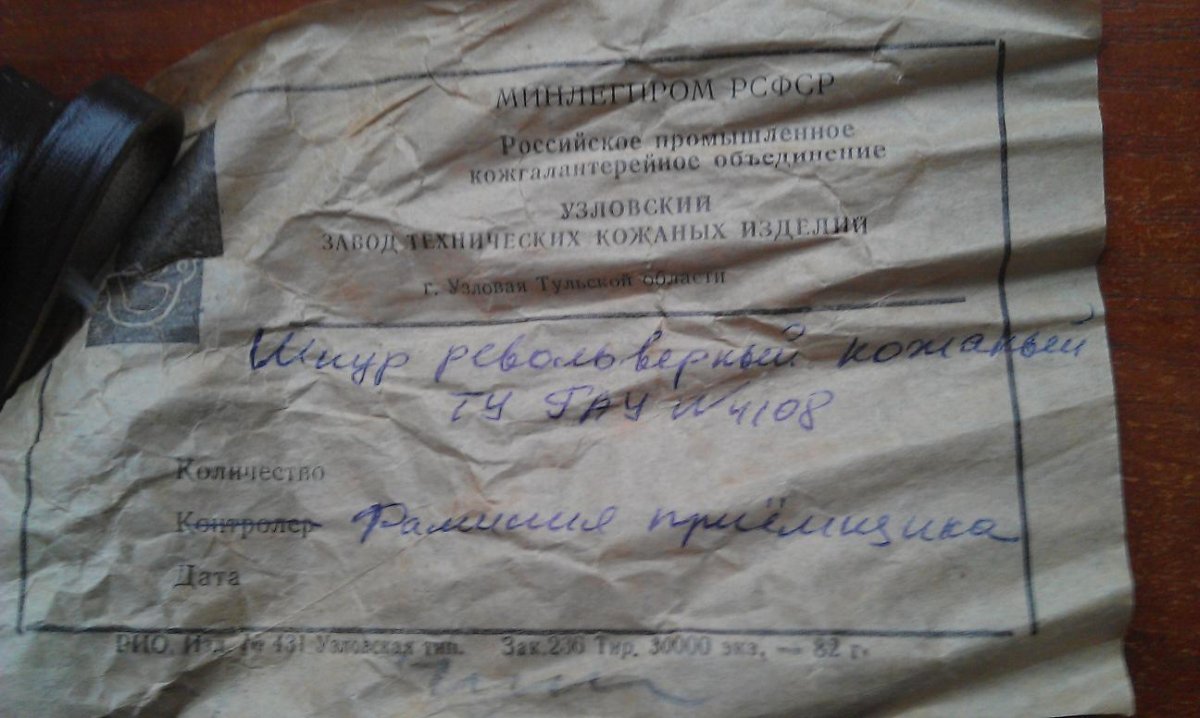 МИНЛЕГПРОМ РСФСР
Российское промышленное
кожгалантерейное объединение
УЗЛОВСКИЙ
ЗАВОД ТЕХНИЧЕСКИХ КОЖАНЫХ ИЗДЕЛИЙ
г. Узловая Тульской области
Шнур револьверный кожаный
ТУ ГАУ № 4108
Количество
Контролер Фамилия приёмщика
Дата
РИО. Изд. № 431 Узловская тип. Зак. 236 Тир. 30000 экз. — 82 г.